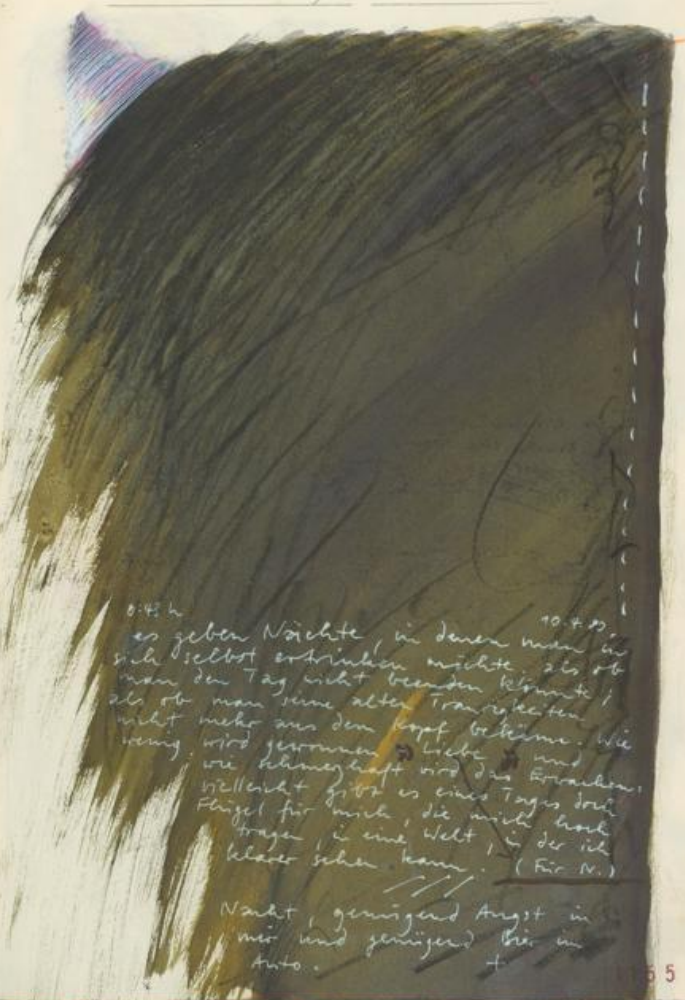 0:45 h
10.7.89
es geben Nächte, in denen man in
sich selbst ertrinken möchte als ob
man den Tag nicht beenden könnte,
als ob man seine alten Traurigkeiten
nicht mehr aus dem Kopf bekäme. Wie
wenig wird gewonnen Liebe und
wie schmerzhaft wird das Erwachen.
vielleicht gibt es eines Tages doch
Flügel für mich, die mich hoch
tragen, in eine Welt, in der ich
klarer sehen kann. (Für N.)
Nacht, genügend Angst in
mir und genügend Bier im
Auto.
55